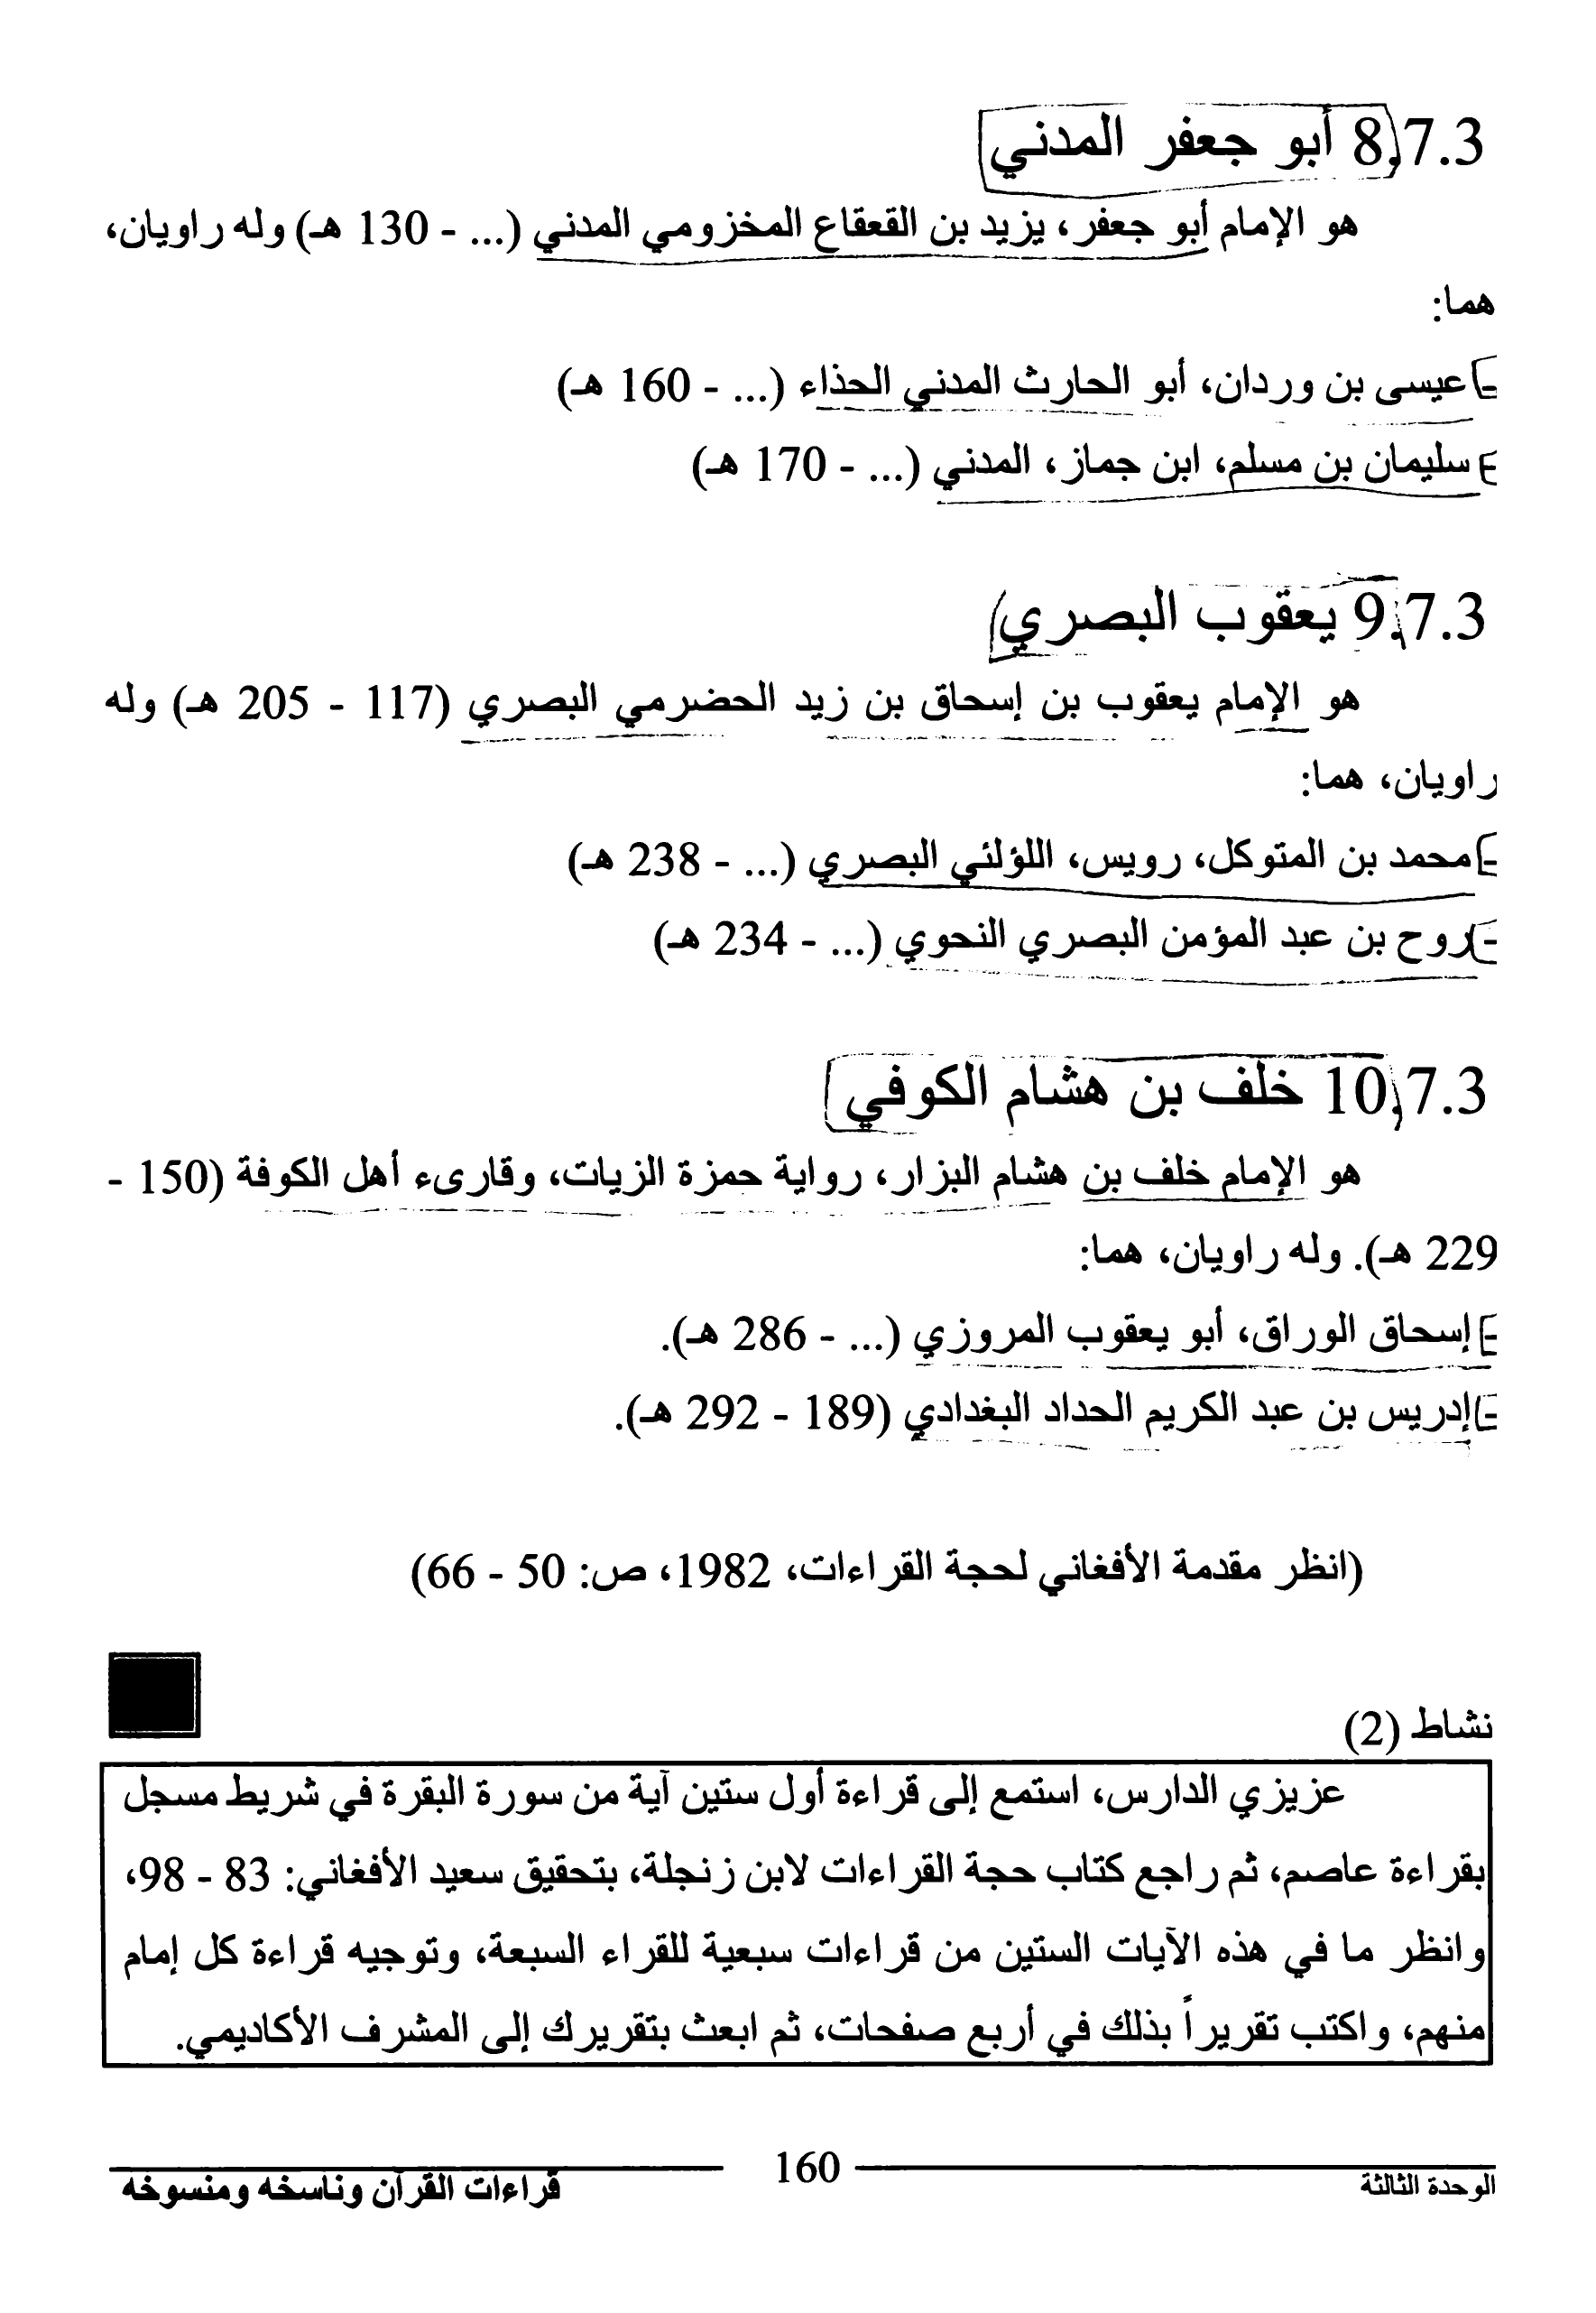 8.7.3 أبو جعفر المدني
هو الإمام أبو جعفر، يزيد بن القعقاع المخزومي المدني (... - 130 هـ) وله راويان،
هما:
- عيسى بن وردان، أبو الحارث المدني الحذاء (... - 160 هـ)
- سليمان بن مسلم، ابن جماز، المدني (... - 170 هـ)
9.7.3 يعقوب البصري
هو الإمام يعقوب بن إسحاق بن زيد الحضرمي البصري (117 - 205 هـ) وله
راويان، هما:
- محمد بن المتوكل، رويس، اللؤلئي البصري (... - 238 هـ)
- روح بن عبد المؤمن البصري النحوي (... - 234 هـ)
10.7.3 خلف بن هشام الكوفي
هو الإمام خلف بن هشام البزار، رواية حمزة الزيات، وقارىء أهل الكوفة (150 -
229 هـ). وله راويان، هما:
- إسحاق الوراق، أبو يعقوب المروزي (... - 286 هـ).
- إدريس بن عبد الكريم الحداد البغدادي (189 - 292 هـ).
(انظر مقدمة الأفغاني لحجة القراءات، 1982، ص: 50 - 66)
نشاط (2)
عزيزي الدارس، استمع إلى قراءة أول ستين آية من سورة البقرة في شريط مسجل
بقراءة عاصم، ثم راجع كتاب حجة القراءات لابن زنجلة، بتحقيق سعيد الأفغاني: 83 - 98،
وانظر ما في هذه الآيات الستين من قراءات سبعية للقراء السبعة، وتوجيه قراءة كل إمام
منهم، واكتب تقريراً بذلك في أربع صفحات، ثم ابعث بتقريرك إلى المشرف الأكاديمي.
الوحدة الثالثة
160
قراءات القرآن وناسخه ومنسوخه